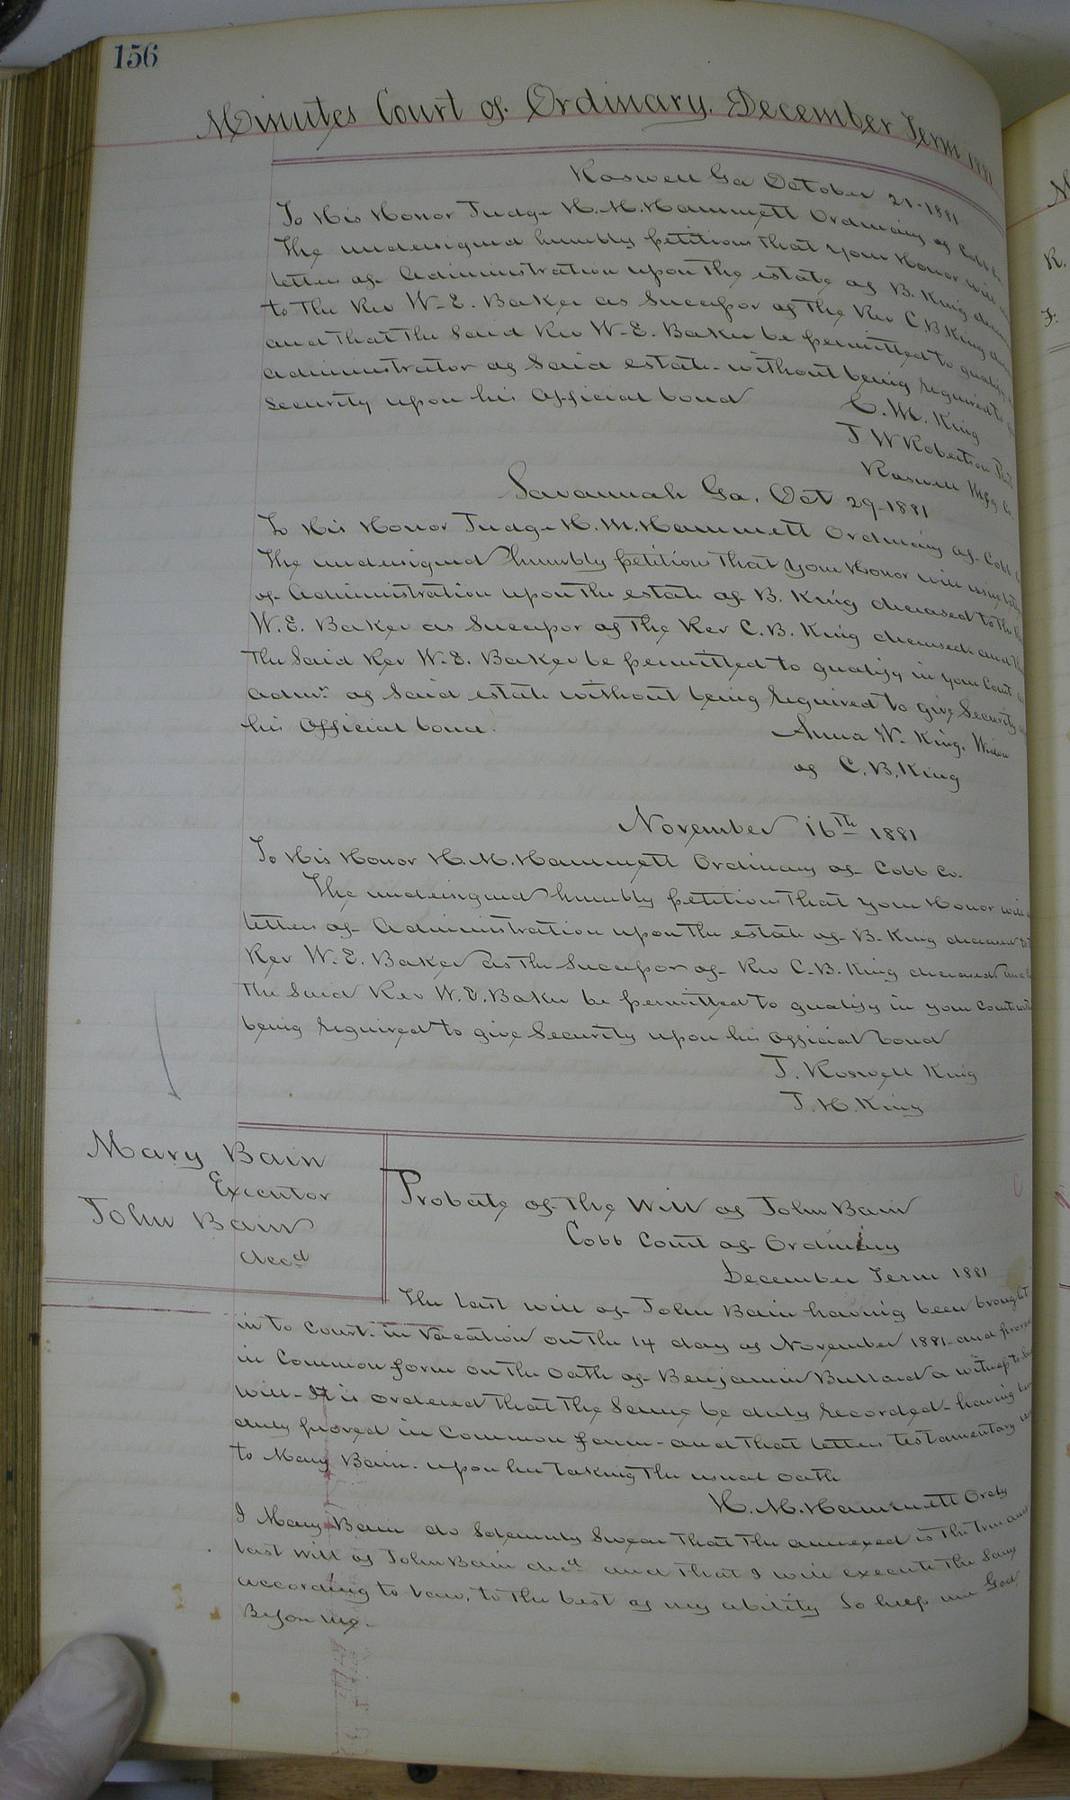 156
Minutes Court of Ordinary. December Term 1881
Roswell Ga October 21-1881
To His Honor Judge H. M. Hammett Ordinary of Cobb
The undersigned humbly petitions that your Honor will
letters of Administration upon the estate of B. King
to the Rev W. E. Baker as Successor of the Rev C. B. King
and that the said Rev W. E. Baker be permitted to qualify
administrator of said estate without being required to
security upon his Official bond
C. M. King
J W Robertson
Roswell Mfg Co.
Savannah Ga. Oct 29-1881
To His Honor Judge H. M. Hammett Ordinary of Cobb
The undersigned humbly petition that your Honor will
of Administration upon the estate of B. King deceased to the
W. E. Baker as Successor of the Rev C. B. King deceased and
the said Rev W. E. Baker be permitted to qualify in your Court
admr of said estate without being required to give Security
his Official bond.
Anna W. King, Widow
of C. B. King
November 16th 1881
To His Honor H. M. Hammett Ordinary of Cobb Co.
The undersigned humbly petitions that your Honor will
letters of Administration upon the estate of B. King deceased
Rev W. E. Baker as the Successor of Rev C. B. King deceased
the said Rev W. E. Baker be permitted to qualify in your Court
being required to give Security upon his official bond
J. Roswell King
J. H. King
Mary Bain
Executor
John Bain
decd
Probate of the Will of John Bain
Cobb Court of Ordinary
December Term 1881
The last will of John Bain having been brought
in to Court in Vacation on the 14 day of November 1881 and
in Common form on the oath of Benjamin Bullard a witness to
will - It is ordered that the Same be duly recorded - having
duly proved in Common form - and that letters testamentary
to Mary Bain. upon her taking the usual oath
H. M. Hammett Ordy
I Mary Bain do Solemnly Swear that the annexed is the true
last will of John Bain decd and that I will execute the Same
according to law, to the best of my ability So help me God
Before me.